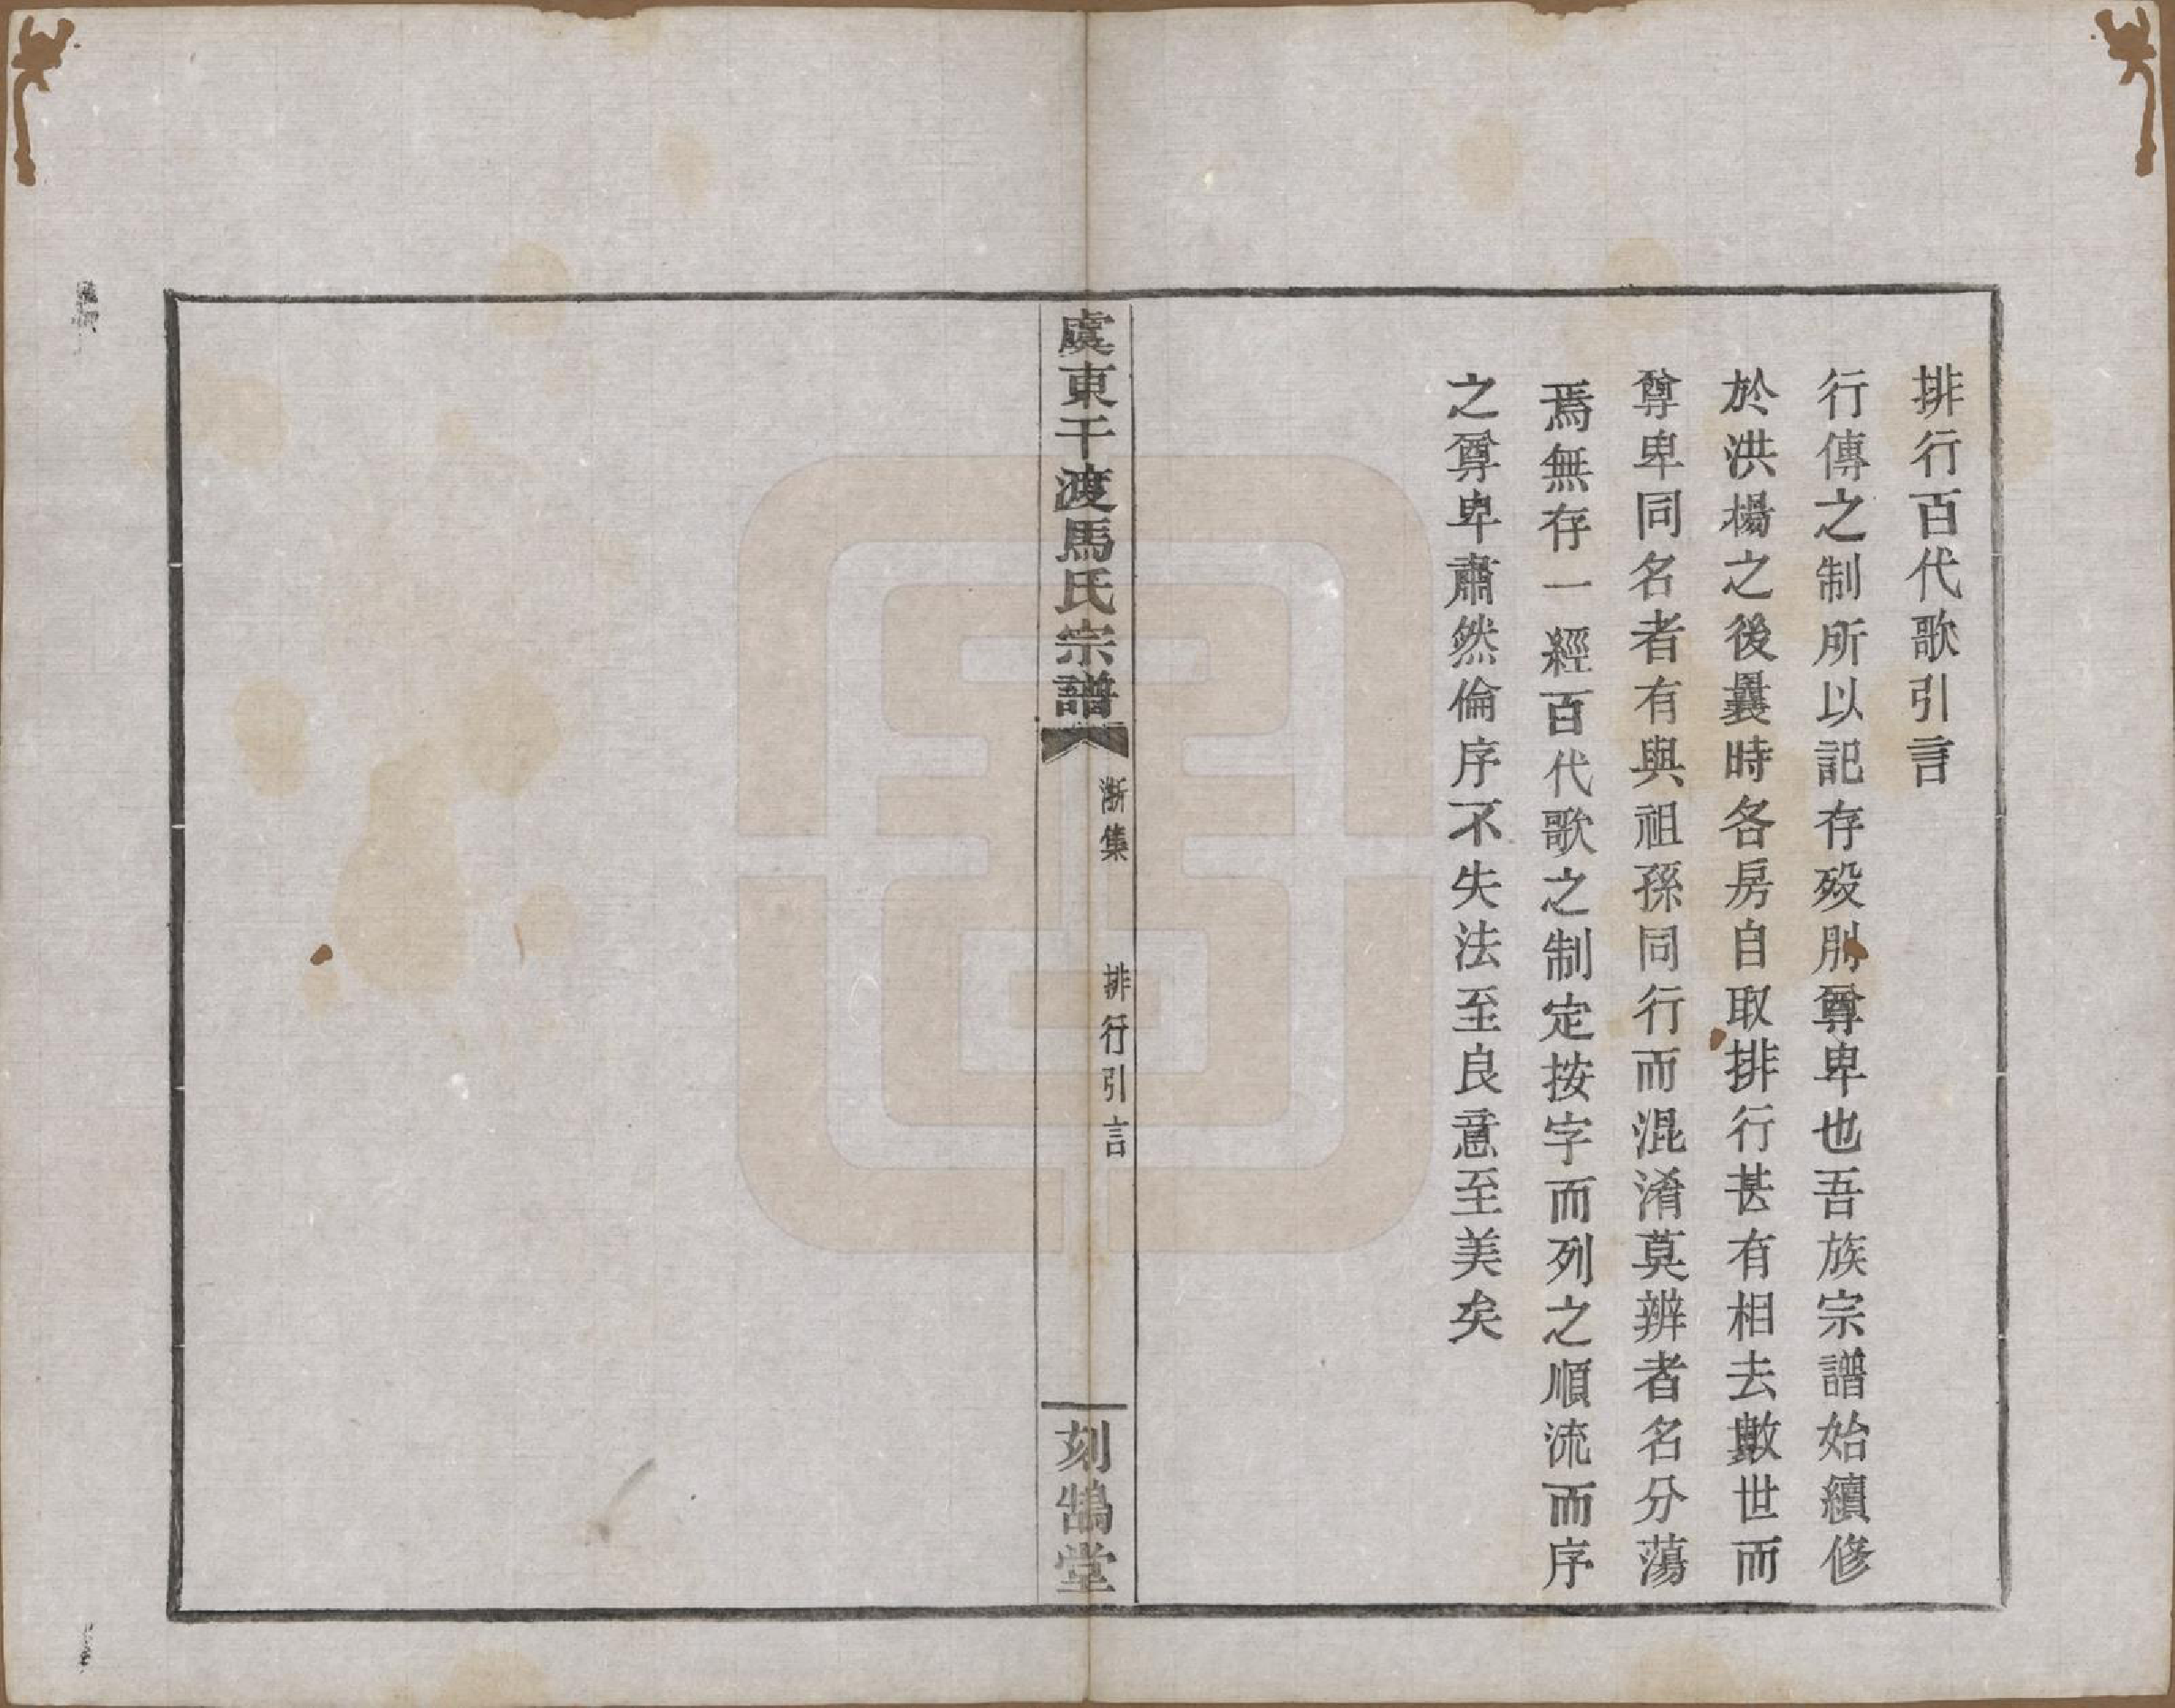 排行百代歌引言
行傳之制所以記存歿別尊卑也吾族宗譜始續修
於洪楊之後曩時各房自取排行甚有相去數世而
尊卑同名者有與祖孫同行而混淆莫辨者名分蕩
焉無存一經百代歌之制定按字而列之順流而序
之尊卑肅然倫序不失法至良意至美矣
虞東干渡馬氏宗譜
漸集
排行引言
刻鵠堂